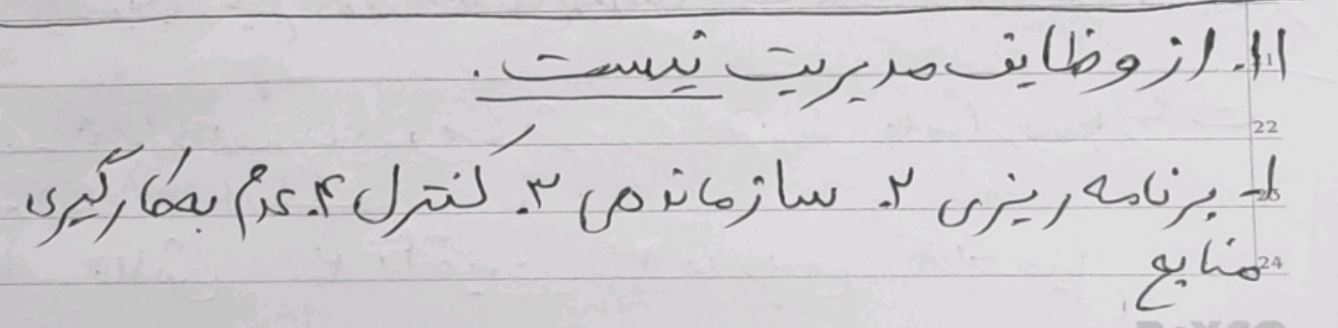 ۱۱. از وظایف مدیریت نیست.
۱- برنامه ریزی ۲. سازماندهی ۳. کنترل ۴. عدم به‌کارگیری
منابع
22
24